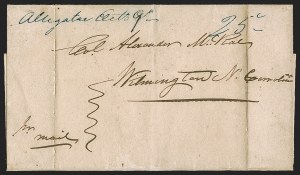 Alligator Oct 9th
25
Col. Alexander McRae
Wilmington N. Carolina
per
mail